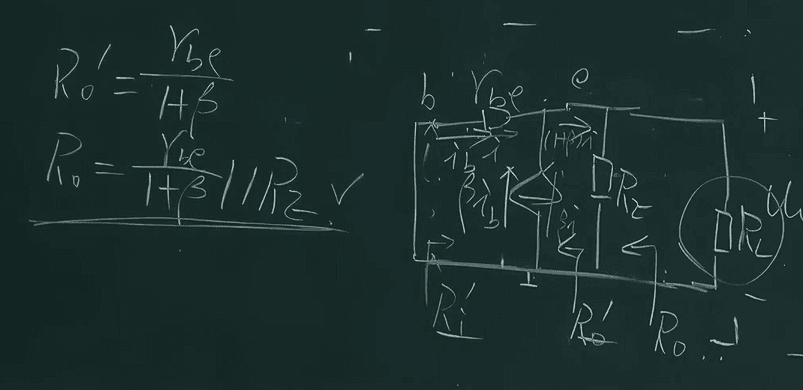 Ro' = rbe / 1+β
Ro = rbe / 1+β // RE ✓
b rbe e
+
ib (1+β)i
βib RE
RL
-
Ri' Ro' Ro